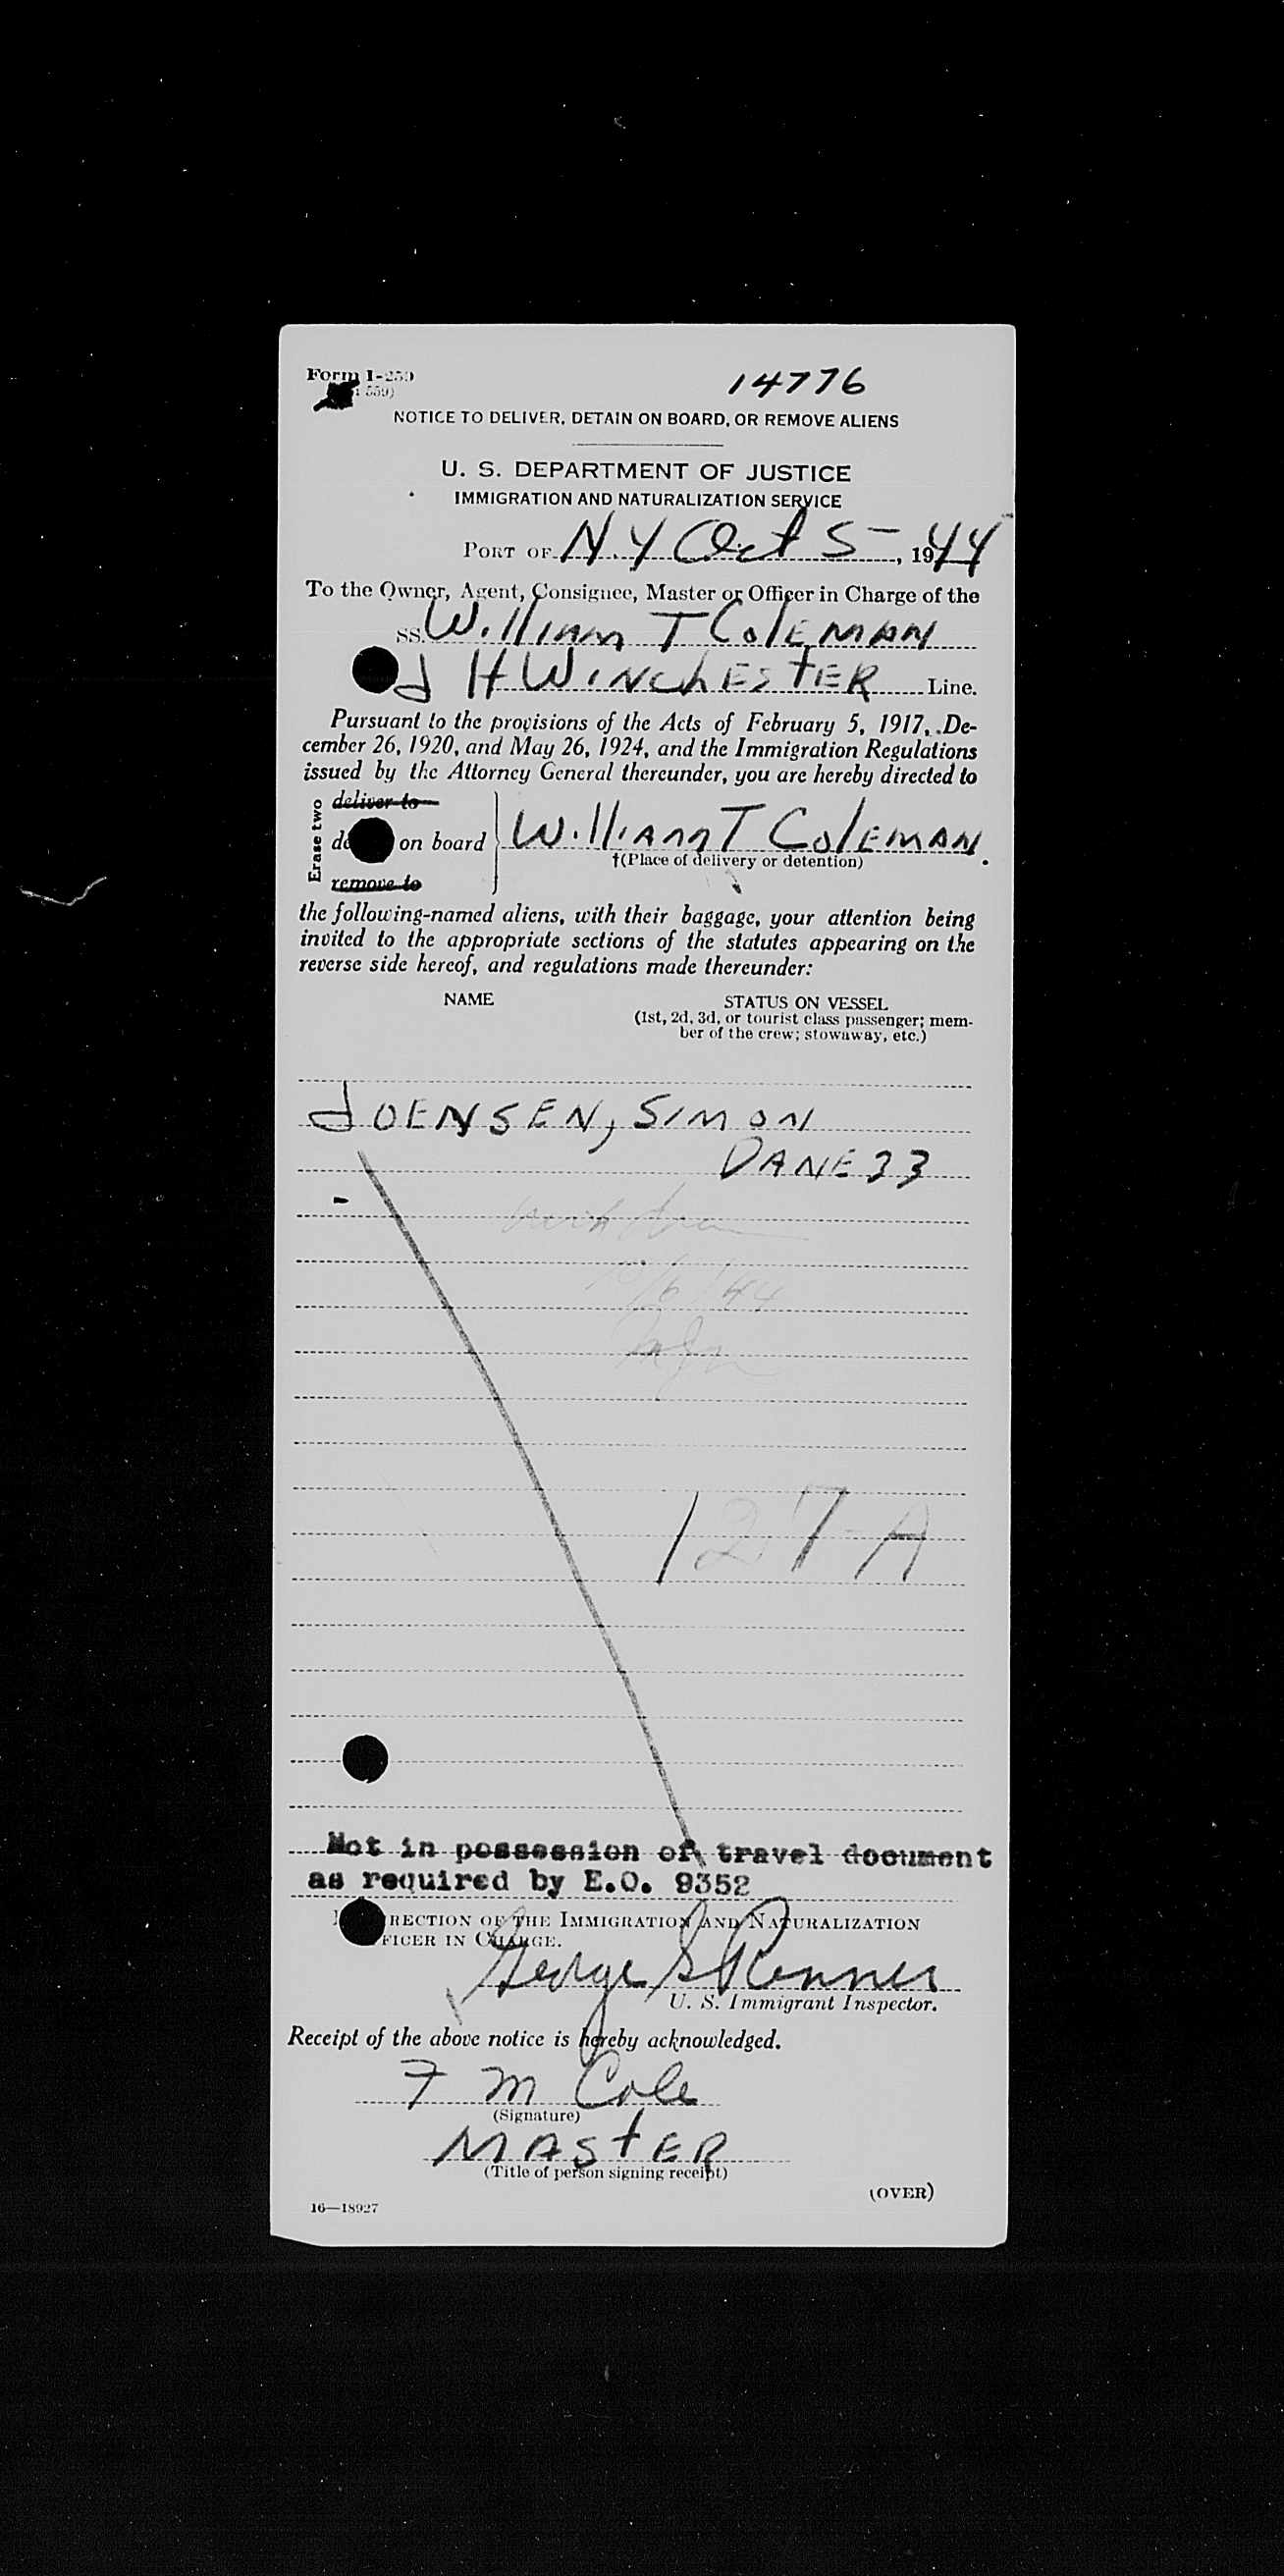 Form I-259
559)
14776
NOTICE TO DELIVER, DETAIN ON BOARD, OR REMOVE ALIENS
U. S. DEPARTMENT OF JUSTICE
IMMIGRATION AND NATURALIZATION SERVICE
PORT OF N.Y Oct 5-, 1944
To the Owner, Agent, Consignee, Master or Officer in Charge of the
SS. William T Coleman
J H WINCHESTER Line.
Pursuant to the provisions of the Acts of February 5, 1917, De-
cember 26, 1920, and May 26, 1924, and the Immigration Regulations
issued by the Attorney General thereunder, you are hereby directed to
Erase two
deliver to
de on board William T Coleman.
remove to
†(Place of delivery or detention)
the following-named aliens, with their baggage, your attention being
invited to the appropriate sections of the statutes appearing on the
reverse side hereof, and regulations made thereunder:
NAME STATUS ON VESSEL
(1st, 2d, 3d, or tourist class passenger; mem-
ber of the crew; stowaway, etc.)
JOENSEN, SIMON
DANE 33
10/6/44
127-A
Not in possession of travel document
as required by E.O. 9352
RECTION OF THE IMMIGRATION AND NATURALIZATION
FICER IN CHARGE.
George S Renner
U. S. Immigrant Inspector.
Receipt of the above notice is hereby acknowledged.
F M Cole
(Signature)
MASTER
(Title of person signing receipt)
(OVER)
16—18927